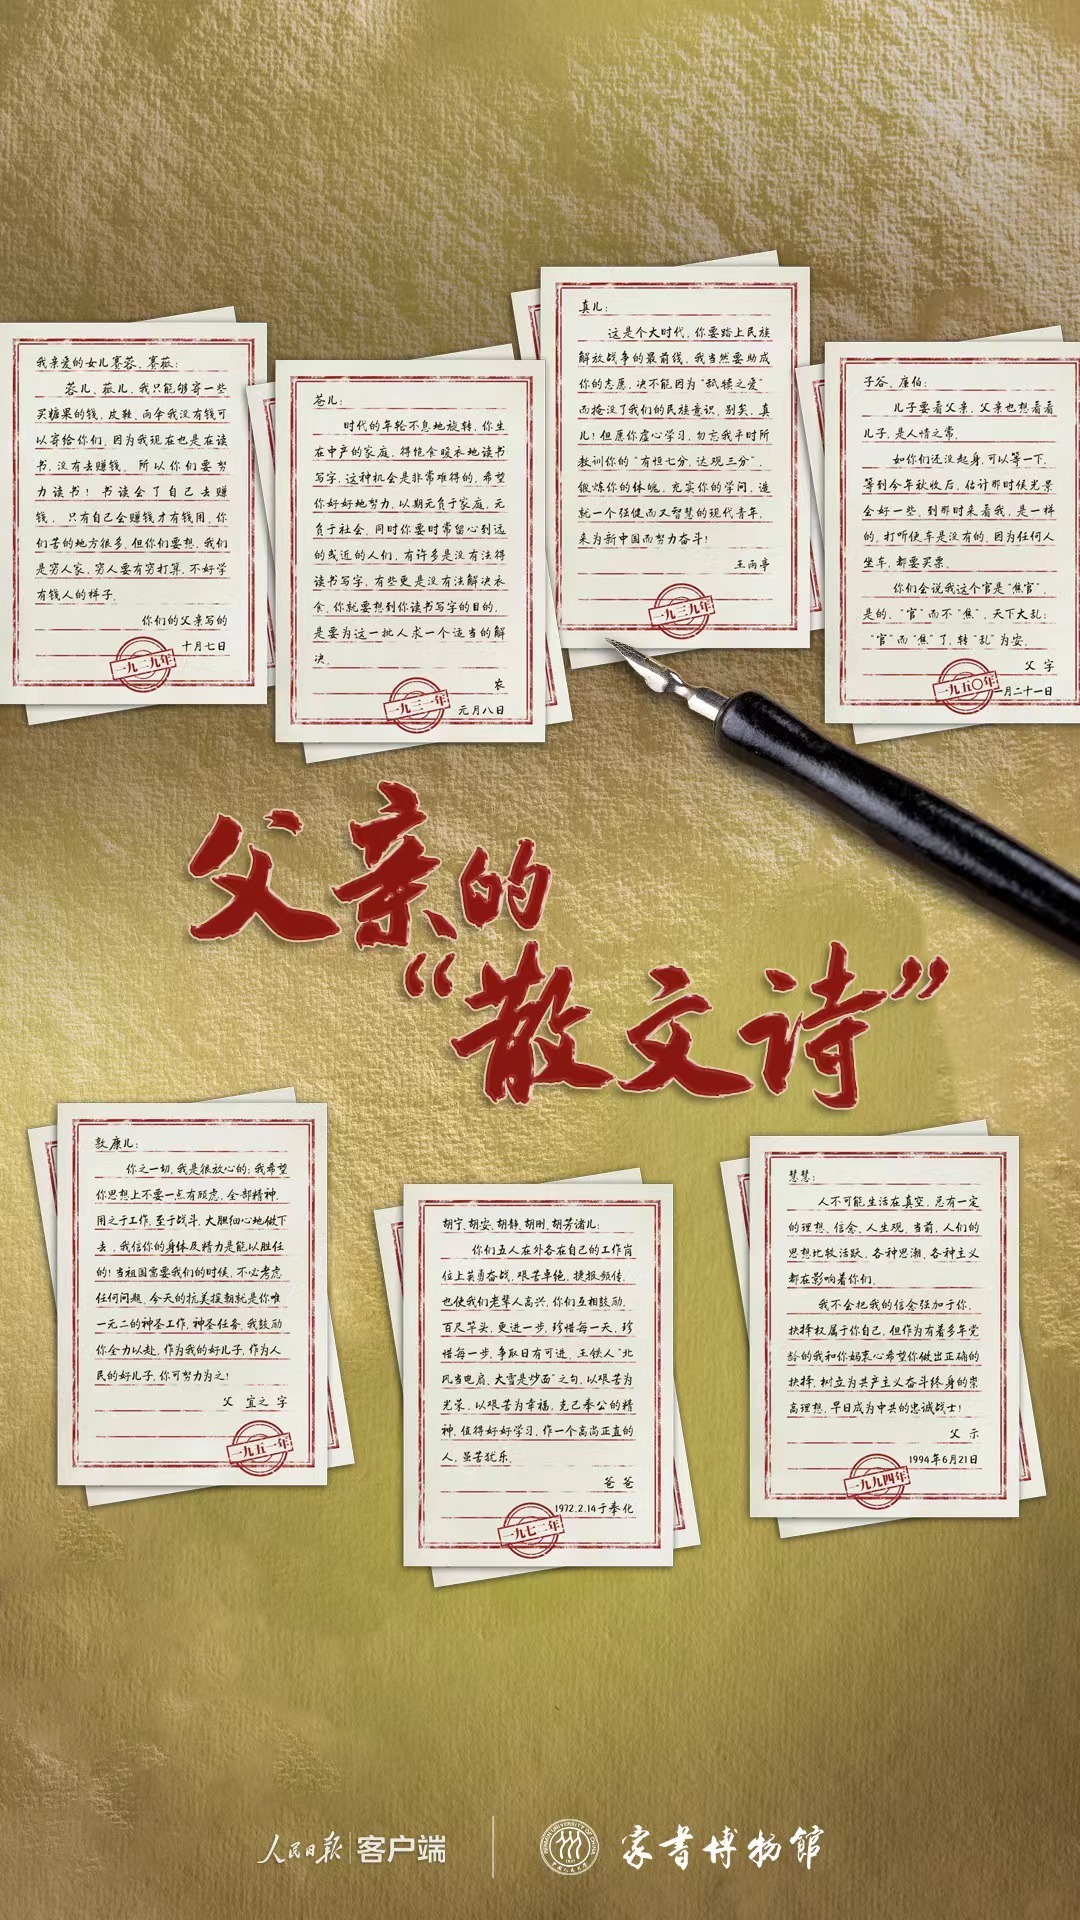 我亲爱的女儿赛蓉、赛菘：
蓉儿、菘儿，我只能够寄一些
买糖果的钱，皮鞋、雨伞我没有钱可
以寄给你们，因为我现在也是在读
书，没有去赚钱。所以你们要努
力读书！书读会了自己去赚
钱，只有自己会赚钱才有钱用。你
们苦的地方很多，但你们要想，我们
是穷人家，穷人要有穷打算，不好学
有钱人的样子。
你们的父亲写的
十月七日
一九二九年
苍儿：
时代的年轮不息地旋转，你生
在中产的家庭，得饱食暖衣地读书
写字，这种机会是非常难得的，希望
你好好地努力，以期无负于家庭，无
负于社会，同时你要时常留心到远
的或近的人们，有许多是没有法得
读书写字，有些更是没有法解决衣
食，你就要想到你读书写字的目的，
是要为这一批人求一个适当的解
决。
农
元月八日
一九三一年
真儿：
这是个大时代，你要踏上民族
解放战争的最前线，我当然要助成
你的志愿，决不能因为“舐犊之爱”
而掩没了我们的民族意识，别矣，真
儿！但愿你虚心学习，勿忘我平时所
教训你的“有恒七分，达观三分”，
锻炼你的体魄，充实你的学问，造
就一个强健而又智慧的现代青年，
来为新中国而努力奋斗！
王雨亭
一九三九年
子谷、廑伯：
儿子要看父亲，父亲也想看看
儿子，是人情之常。
如你们还没起身，可以等一下，
等到今年秋收后，估计那时候光景
会好一些，到那时来看我，是一样
的，打听便车是没有的，因为任何人
坐车，都要买票。
你们会说我这个官是“焦官”，
是的，“官”而不“焦”，天下大乱；
“官”而“焦”了，转“乱”为安。
父字
一月二十一日
一九五〇年
父亲的
“散文诗”
敦康儿：
你之一切，我是很放心的；我希望
你思想上不要一点有顾虑，全部精神，
用之于工作，至于战斗，大胆细心地做下
去，我信你的身体及精力是能以胜任
的！当祖国需要我们的时候，不必考虑
任何问题，今天的抗美援朝就是你唯
一无二的神圣工作，神圣任务，我鼓励
你全力以赴，作为我的好儿子，作为人
民的好儿子，你可努力为之！
父 宜之 字
一九五一年
胡宁、胡安、胡静、胡刚、胡芳诸儿：
你们五人在外各在自己的工作岗
位上英勇奋战，艰苦卓绝，捷报频传，
也使我们老辈人高兴，你们互相鼓励，
百尺竿头，更进一步，珍惜每一天，珍
惜每一步，争取日有可进，王铁人“北
风当电扇，大雪是炒面”之句，以艰苦为
光荣，以艰苦为幸福，克己奉公的精
神，值得好好学习，作一个高尚正直的
人，虽苦犹乐。
爸爸
1972.2.14于奉化
一九七二年
慧慧：
人不可能生活在真空，总有一定
的理想、信念、人生观，当前，人们的
思想比较活跃，各种思潮、各种主义
都在影响着你们。
我不会把我的信念强加于你，
抉择权属于你自己，但作为有着多年党
龄的我和你妈衷心希望你做出正确的
抉择，树立为共产主义奋斗终身的崇
高理想，早日成为中共的忠诚战士！
父示
1994年6月21日
一九九四年
人民日报 客户端
家书博物馆